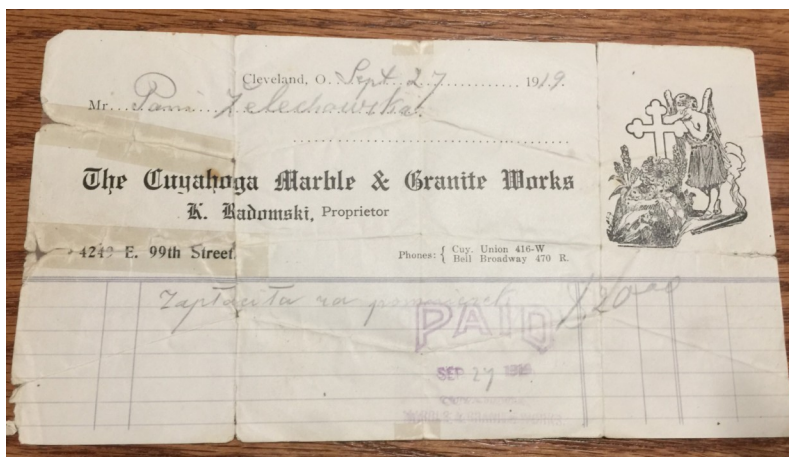 Cleveland, O. Sept. 27 1919.
Mr. Pani Zelechowska.
The Cuyahoga Marble & Granite Works
K. Radomski, Proprietor
4249 E. 99th Street.
Phones: { Cuy. Union 416-W
Bell Broadway 470 R.
Zapłaciła za pomniczek
PAID
SEP 27 1919